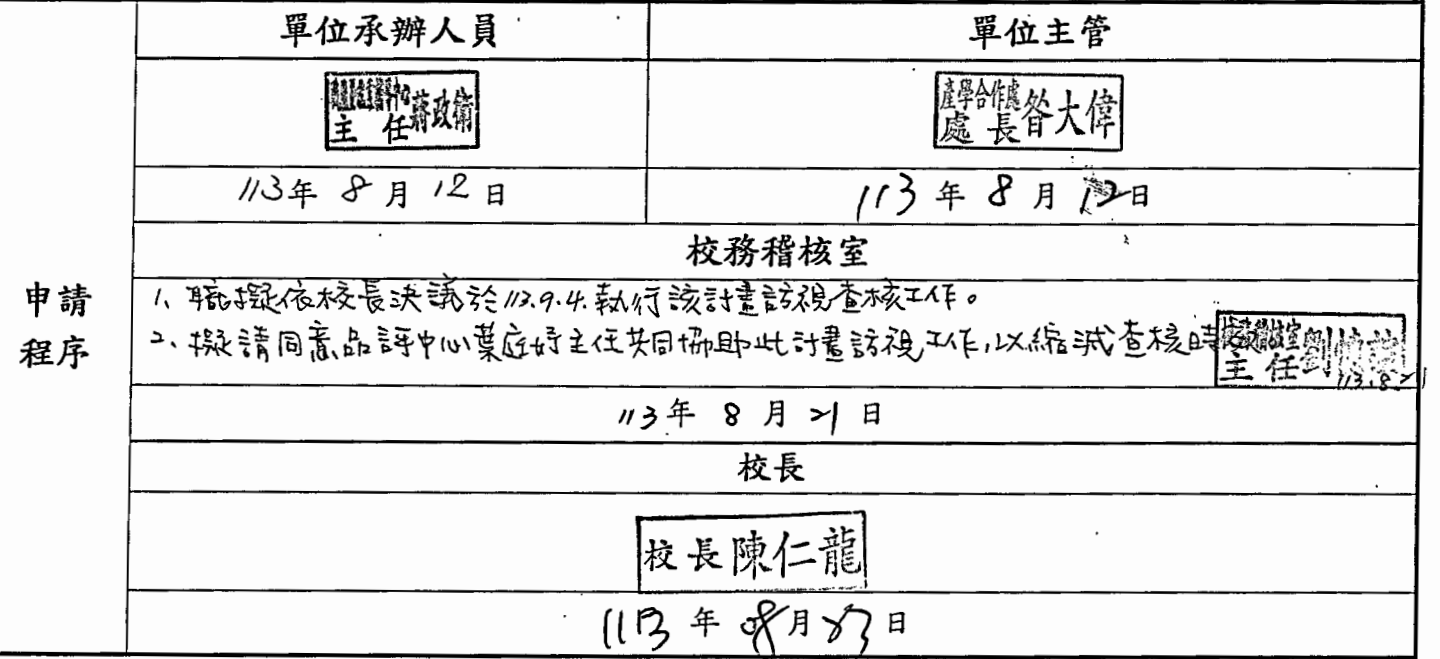 單位承辦人員 單位主管
主任 蔣政衛
產學合作處
處長 昝大偉
113年 8月 12日
113年 8月 12日
校務稽核室
申請
程序
1、職擬依校長決議於113.9.4.執行該計畫訪視查核工作。
2、擬請同意品評中心葉庭妤主任共同協助此計畫訪視工作,以縮減查核時
校務稽核室
主任 劉
113.8.21
113年 8月 21日
校長
校長陳仁龍
113年 08月 23日